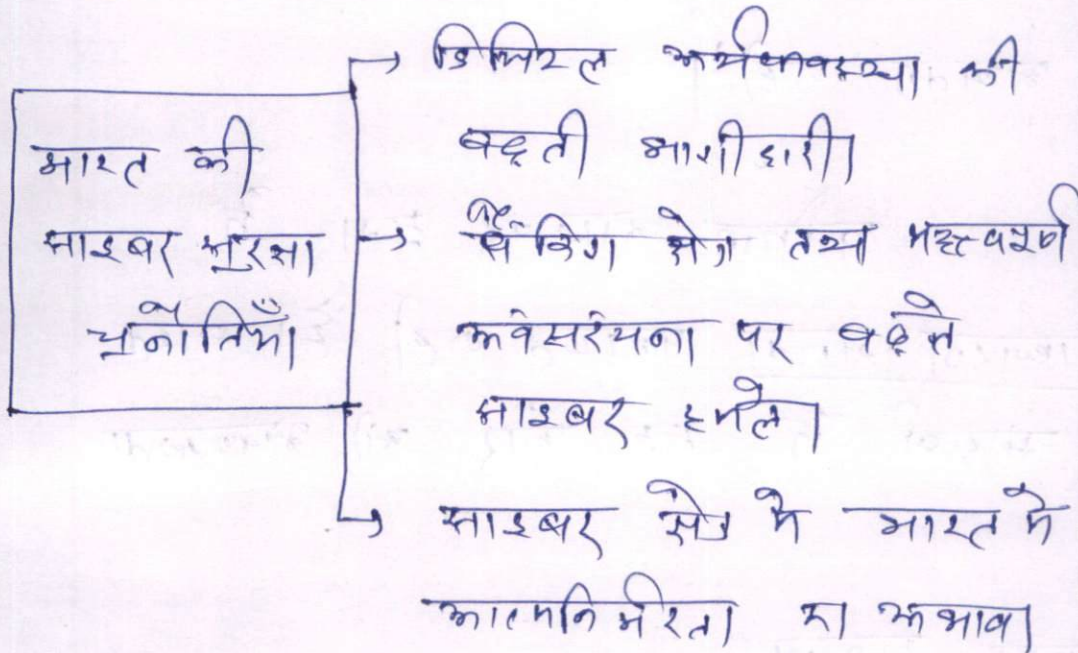 भारत की
साइबर सुरक्षा
चुनौतियाँ
→ डिजिटल अर्थव्यवस्था की
बढ़ती भागीदारी।
→ बैंकिंग क्षेत्र तथा महत्वपूर्ण
अवसंरचना पर बढ़ते
साइबर हमले।
→ साइबर क्षेत्र में भारत में
आत्मनिर्भरता का अभाव।